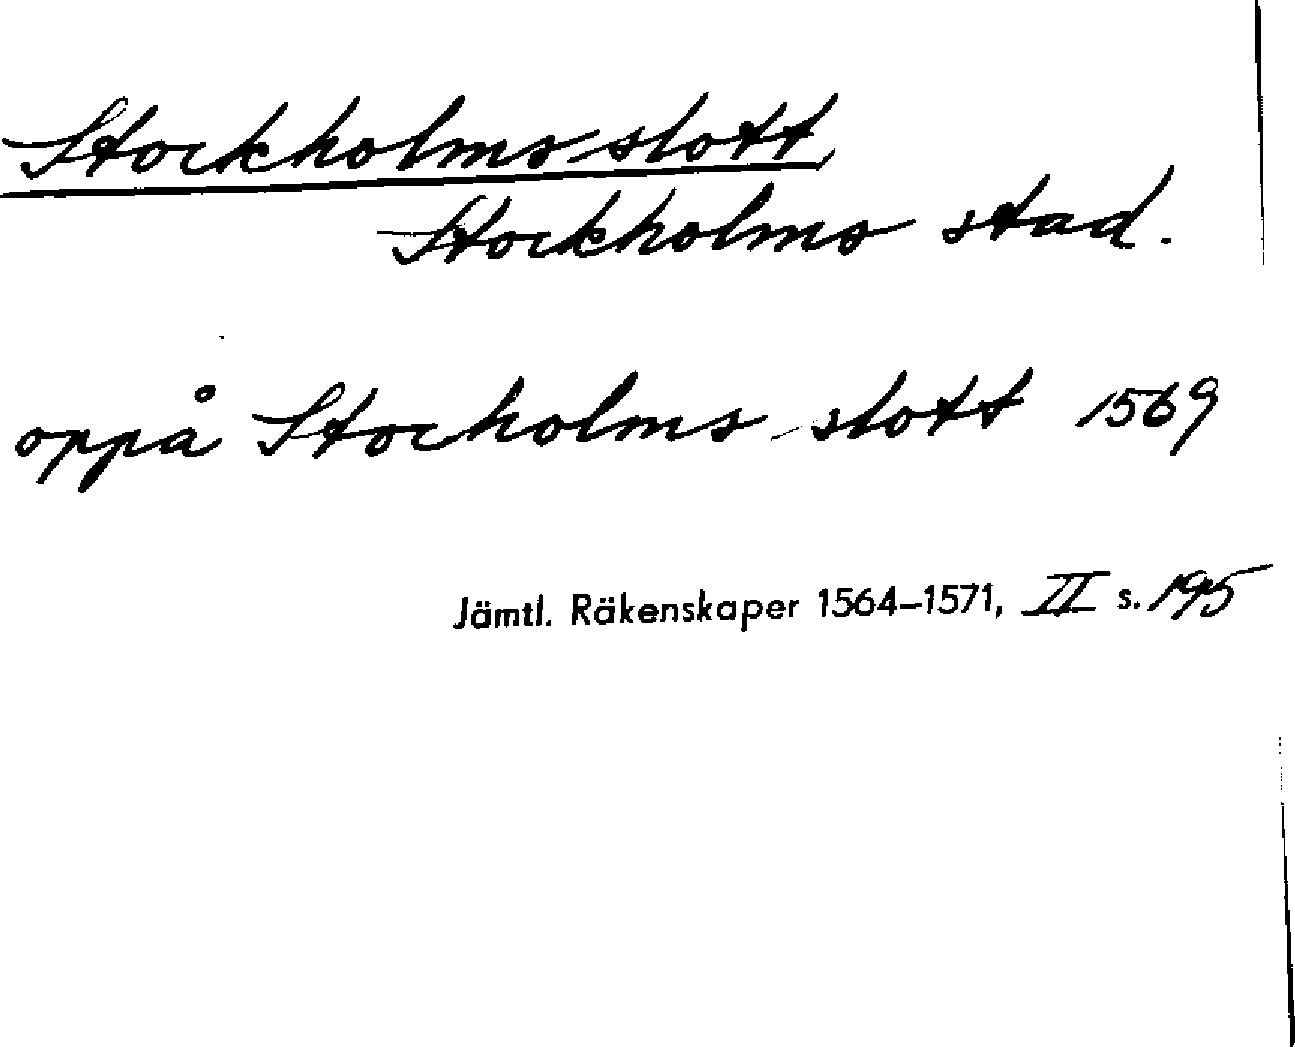 Stockholms slott,
Stockholms stad.
oppå Stocholms slott 1569
Jämtl. Räkenskaper 1564–1571, II s. 195